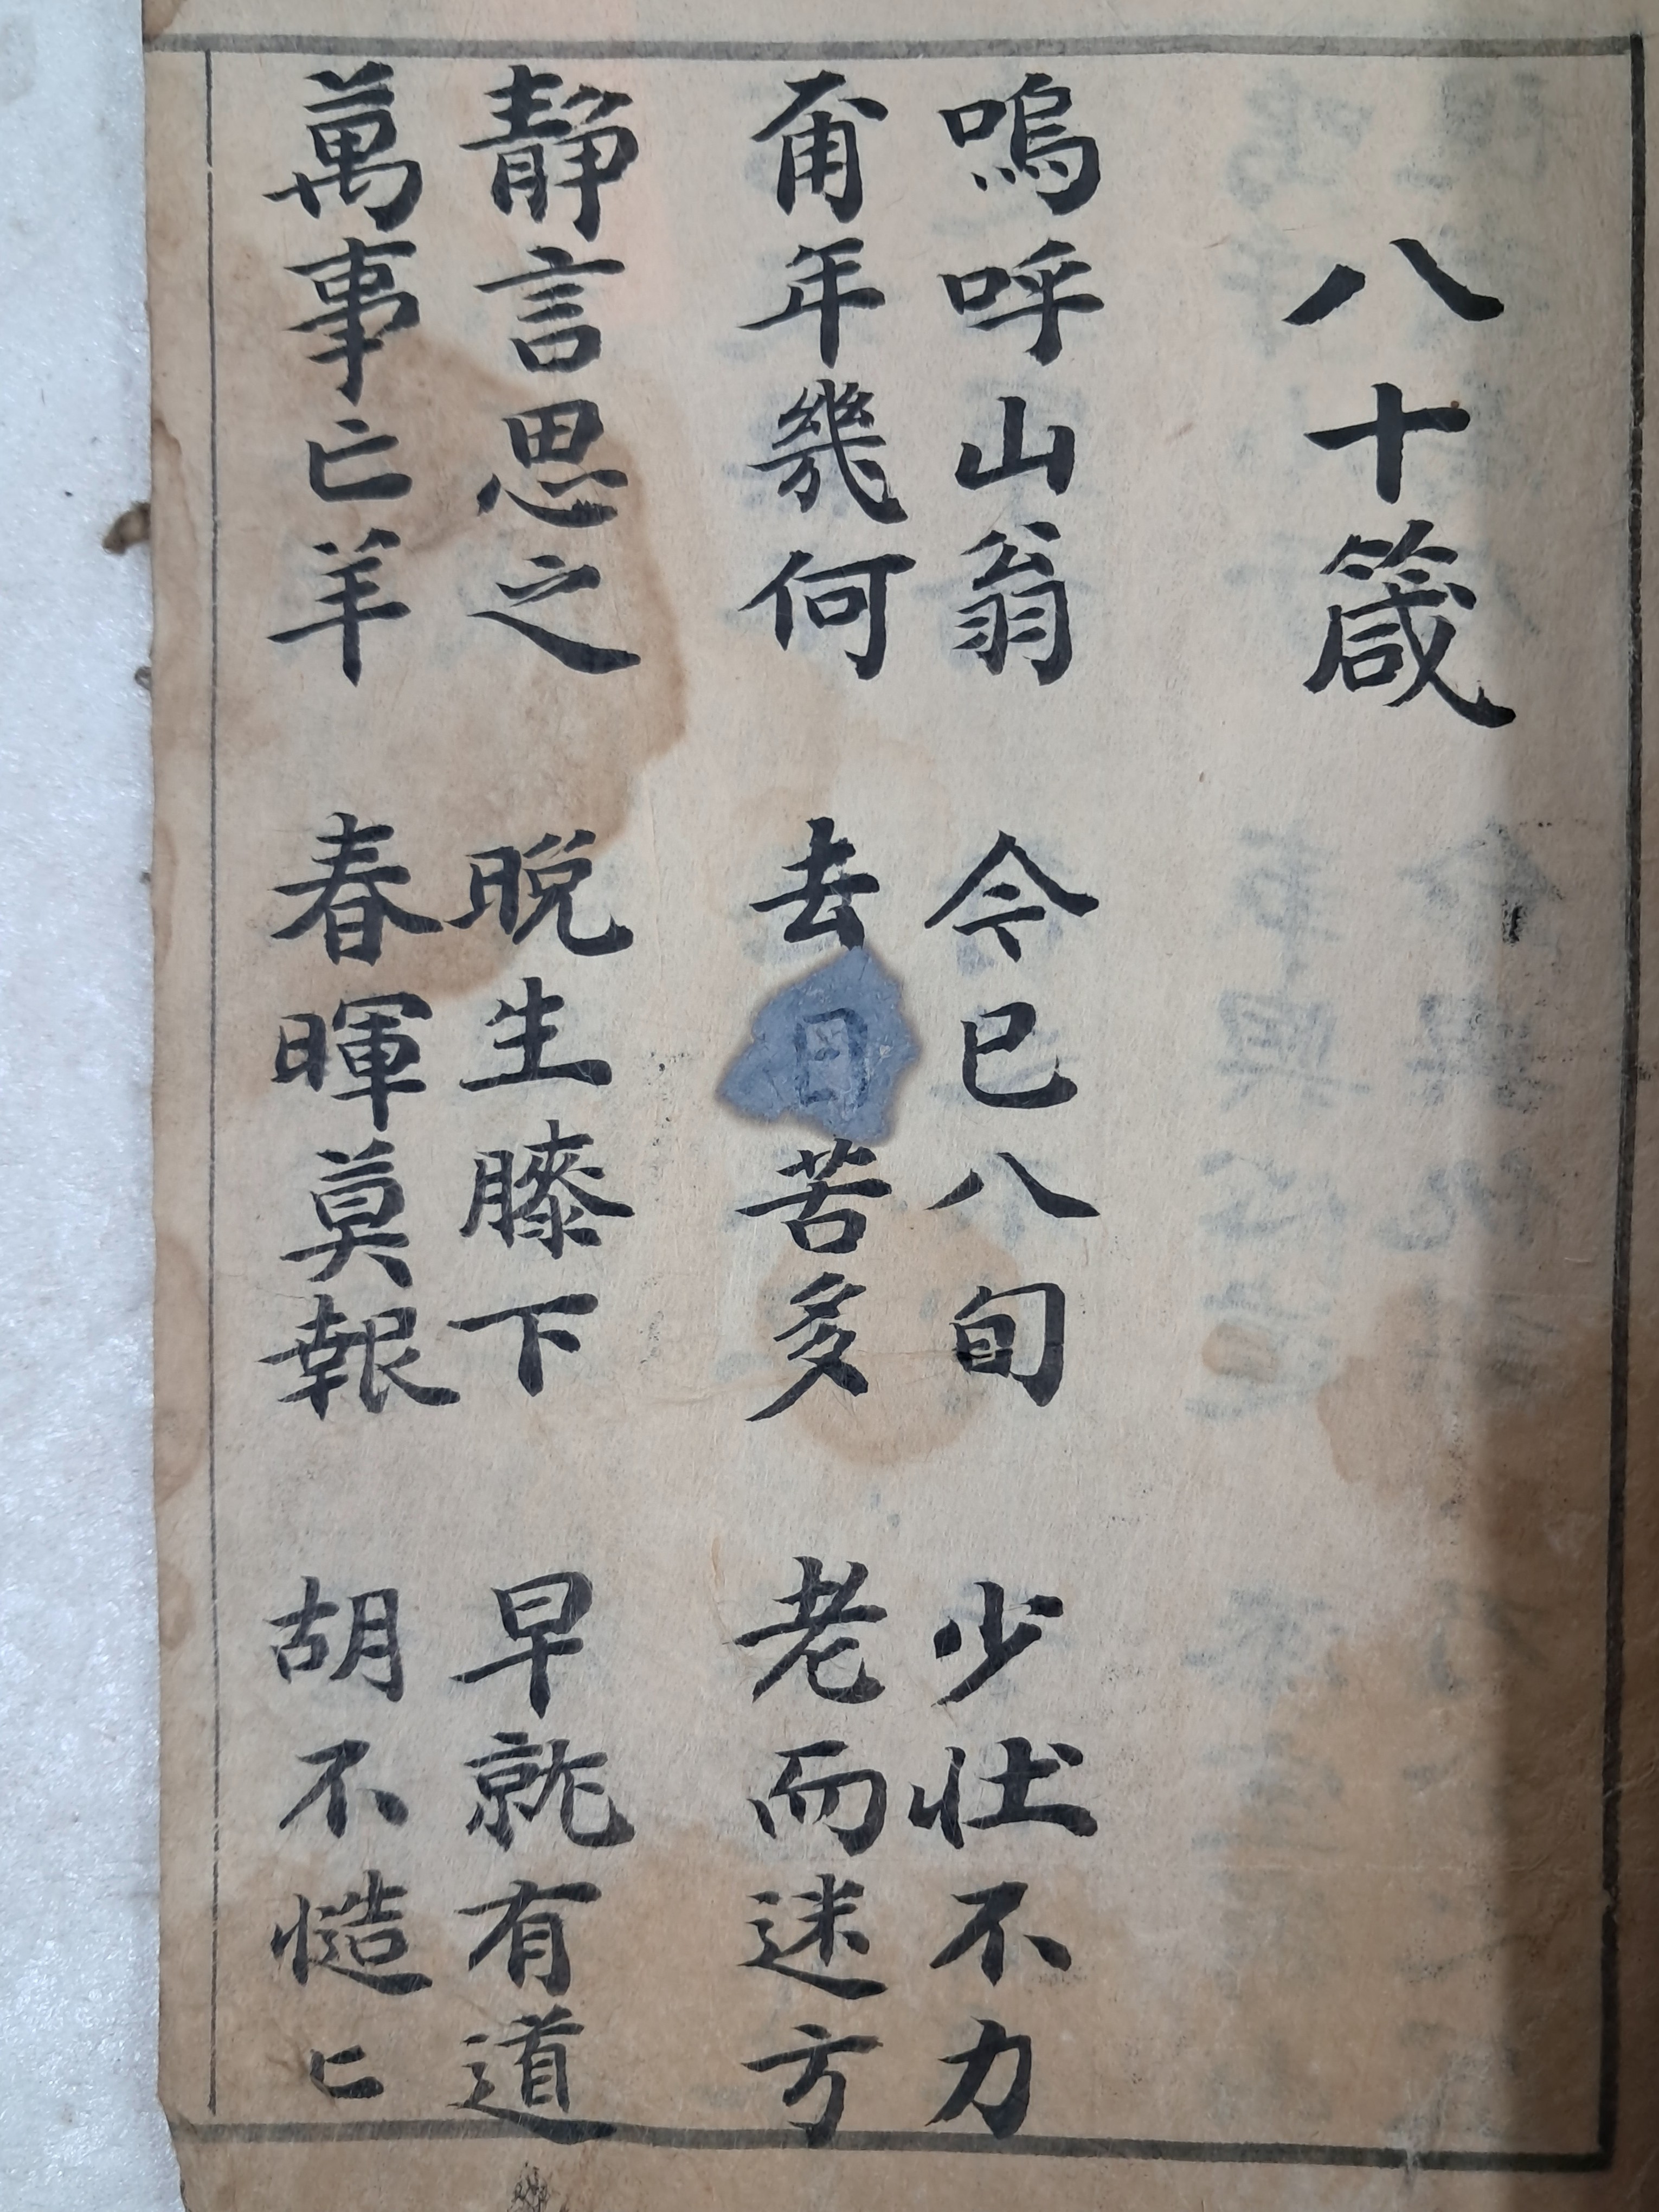 八十箴
嗚呼山翁 今已八旬 少壯不力
爾年幾何 去日苦多 老而迷方
静言思之 晚生膝下 早就有道
萬事亡羊 春暉莫報 胡不慥匕